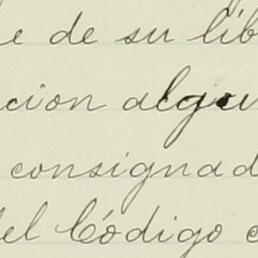 e de su lib
cion algu
consignad
del Código c